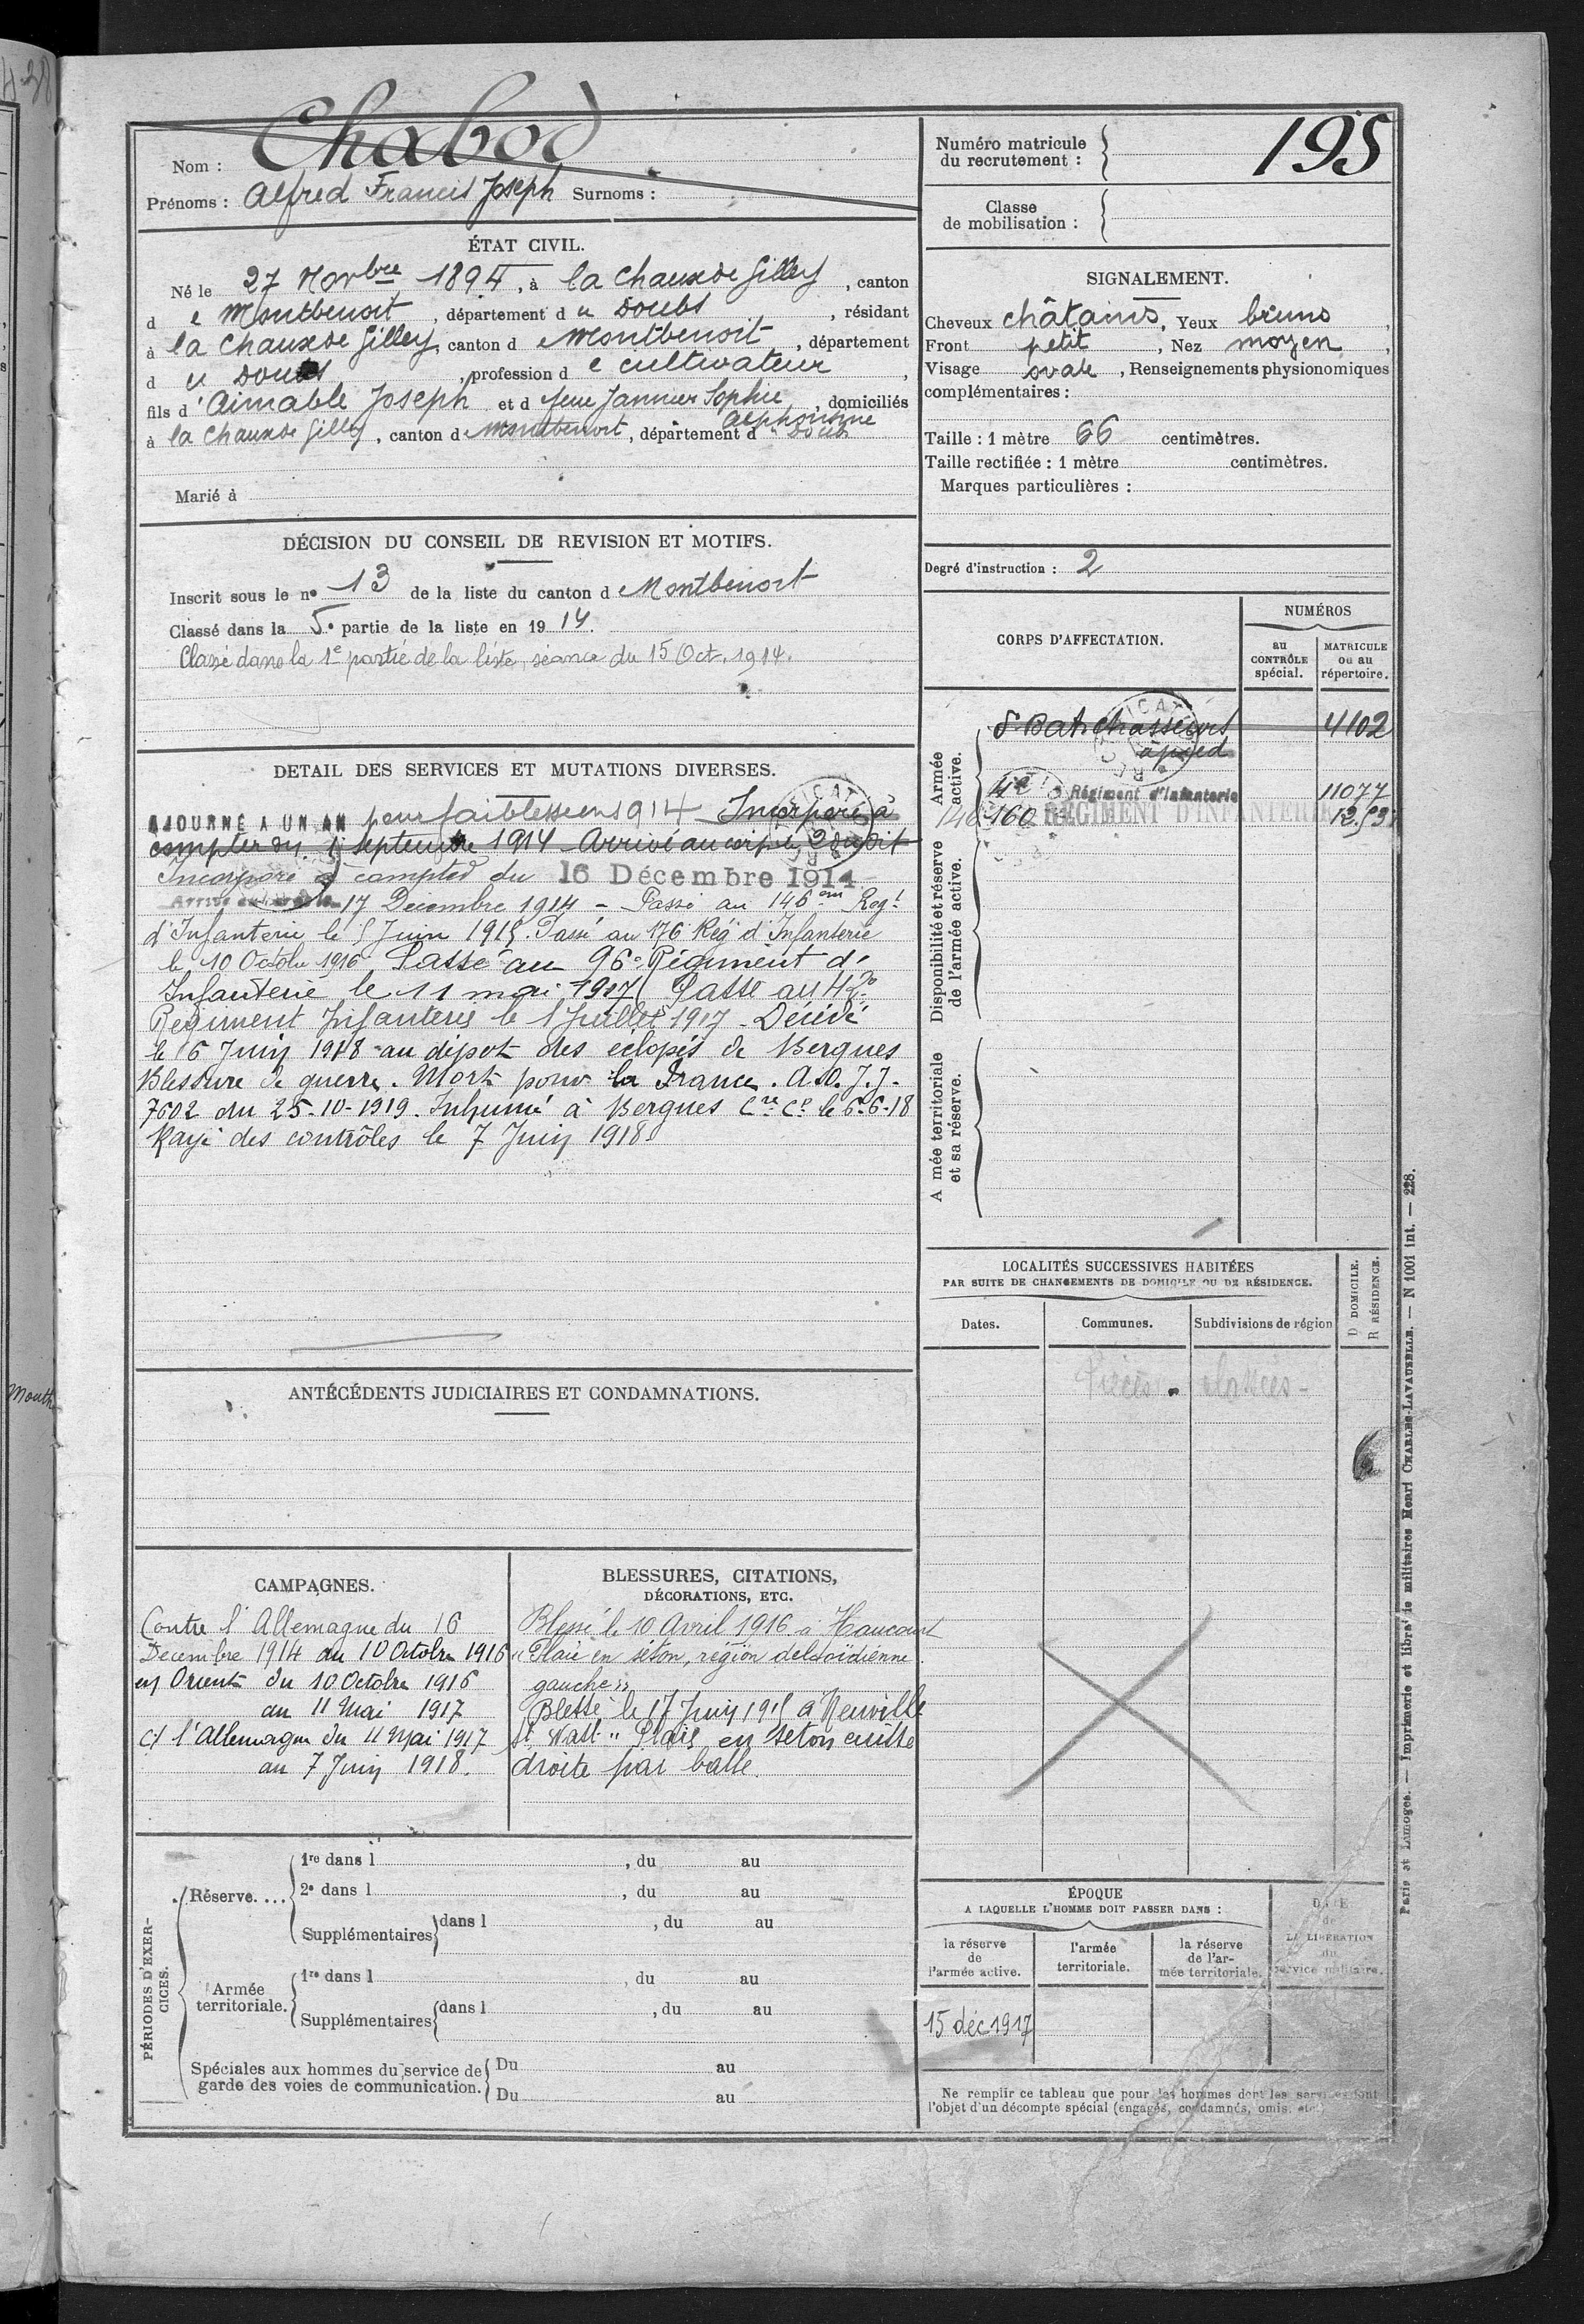 Nom : Chabod
Prénoms : Alfred Francis Joseph Surnoms :
Numéro matricule du recrutement : 195
Classe de mobilisation :
ÉTAT CIVIL.
Né le 27 Novbre 1894, à la Chaux de Gilley, canton
de Montbenoit, département du Doubs, résidant
à la Chaux de Gilley, canton de Montbenoit, département
du Doubs, profession de cultivateur,
fils d'Aimable Joseph et de feue Jannier Sophie Alphonsine, domiciliés
à la Chaux de Gilley, canton de Montbenoit, département du Doubs
Marié à
SIGNALEMENT.
Cheveux châtains, Yeux bruns,
Front petit, Nez moyen,
Visage ovale, Renseignements physionomiques
complémentaires :
Taille : 1 mètre 66 centimètres.
Taille rectifiée : 1 mètre centimètres.
Marques particulières :
Degré d'instruction : 2
DÉCISION DU CONSEIL DE REVISION ET MOTIFS.
Inscrit sous le n° 13 de la liste du canton de Montbenoit
Classé dans la 5e partie de la liste en 1914.
Classé dans la 1e partie de la liste, séance du 15 Oct. 1914.
CORPS D'AFFECTATION.
NUMÉROS
au CONTRÔLE spécial.
MATRICULE ou au répertoire.
Armée active.
8 Bat. chasseurs à pied 4102
Régiment d'Infanterie 11077
160 RÉGIMENT D'INFANTERIE
Disponibilité et réserve de l'armée active.
A mée territoriale et sa réserve.
DETAIL DES SERVICES ET MUTATIONS DIVERSES.
AJOURNÉ A UN AN pour faiblesse en 1914 Incorporé à
compter du septembre 1914 Arrivé au corps le dudit
Incorporé à compter du 16 Décembre 1914
17 Décembre 1914 - Passé au 146em Regt
d'Infanterie le 5 Juin 1915. Passé au 176 Rég d'Infanterie
le 10 Octobre 1916 Passé au 96e Régiment d'
Infanterie le 11 mai 1917 Passé au 4
Régiment Infanterie le 1 Juillet 1917 - Décédé
le 6 Juin 1918 au dépot des éclopés de Bergues
Blessure de guerre. Mort pour la France.
7602 du 25-10-1919. Inhumé à Bergues Cre Ce le 6-6-18
Rayé des contrôles le 7 Juin 1918
LOCALITÉS SUCCESSIVES HABITÉES
PAR SUITE DE CHANGEMENTS DE DOMICILE OU DE RÉSIDENCE.
Dates. Communes. Subdivisions de région
D DOMICILE.
R RÉSIDENCE.
ANTÉCÉDENTS JUDICIAIRES ET CONDAMNATIONS.
Mouthe
CAMPAGNES.
Contre l'Allemagne du 16
Décembre 1914 au 10 Octobre 1916
en Orient du 10 Octobre 1916
au 11 Mai 1917
C/ l'Allemagne du 11 Mai 1917
au 7 Juin 1918.
BLESSURES, CITATIONS,
DÉCORATIONS, ETC.
Blessé le 10 Avril 1916 à Haucourt
"Plaie en séton, région deltoïdienne
gauche"
Blessé le 17 Juin 1915 à Neuville
St Vast " Plaie en seton cuisse
droite par balle.
PÉRIODES D'EXERCICES.
Réserve....
1re dans l , du au
2e dans l , du au
Supplémentaires dans l , du au
Armée territoriale.
1re dans l , du au
Supplémentaires dans l , du au
Spéciales aux hommes du service de garde des voies de communication.
Du au
Du au
ÉPOQUE
A LAQUELLE L'HOMME DOIT PASSER DANS :
la réserve de l'armée active.
l'armée territoriale.
la réserve de l'armée territoriale.
DATE de LA LIBÉRATION du service militaire.
15 déc 1917
Ne remplir ce tableau que pour les hommes dont les services font
l'objet d'un décompte spécial (engagés, condamnés, omis, etc.)
Paris et Limoges. — Imprimerie et librairie militaires Henri CHARLES-LAVAUZELLE. — N 1001 int. — 228.